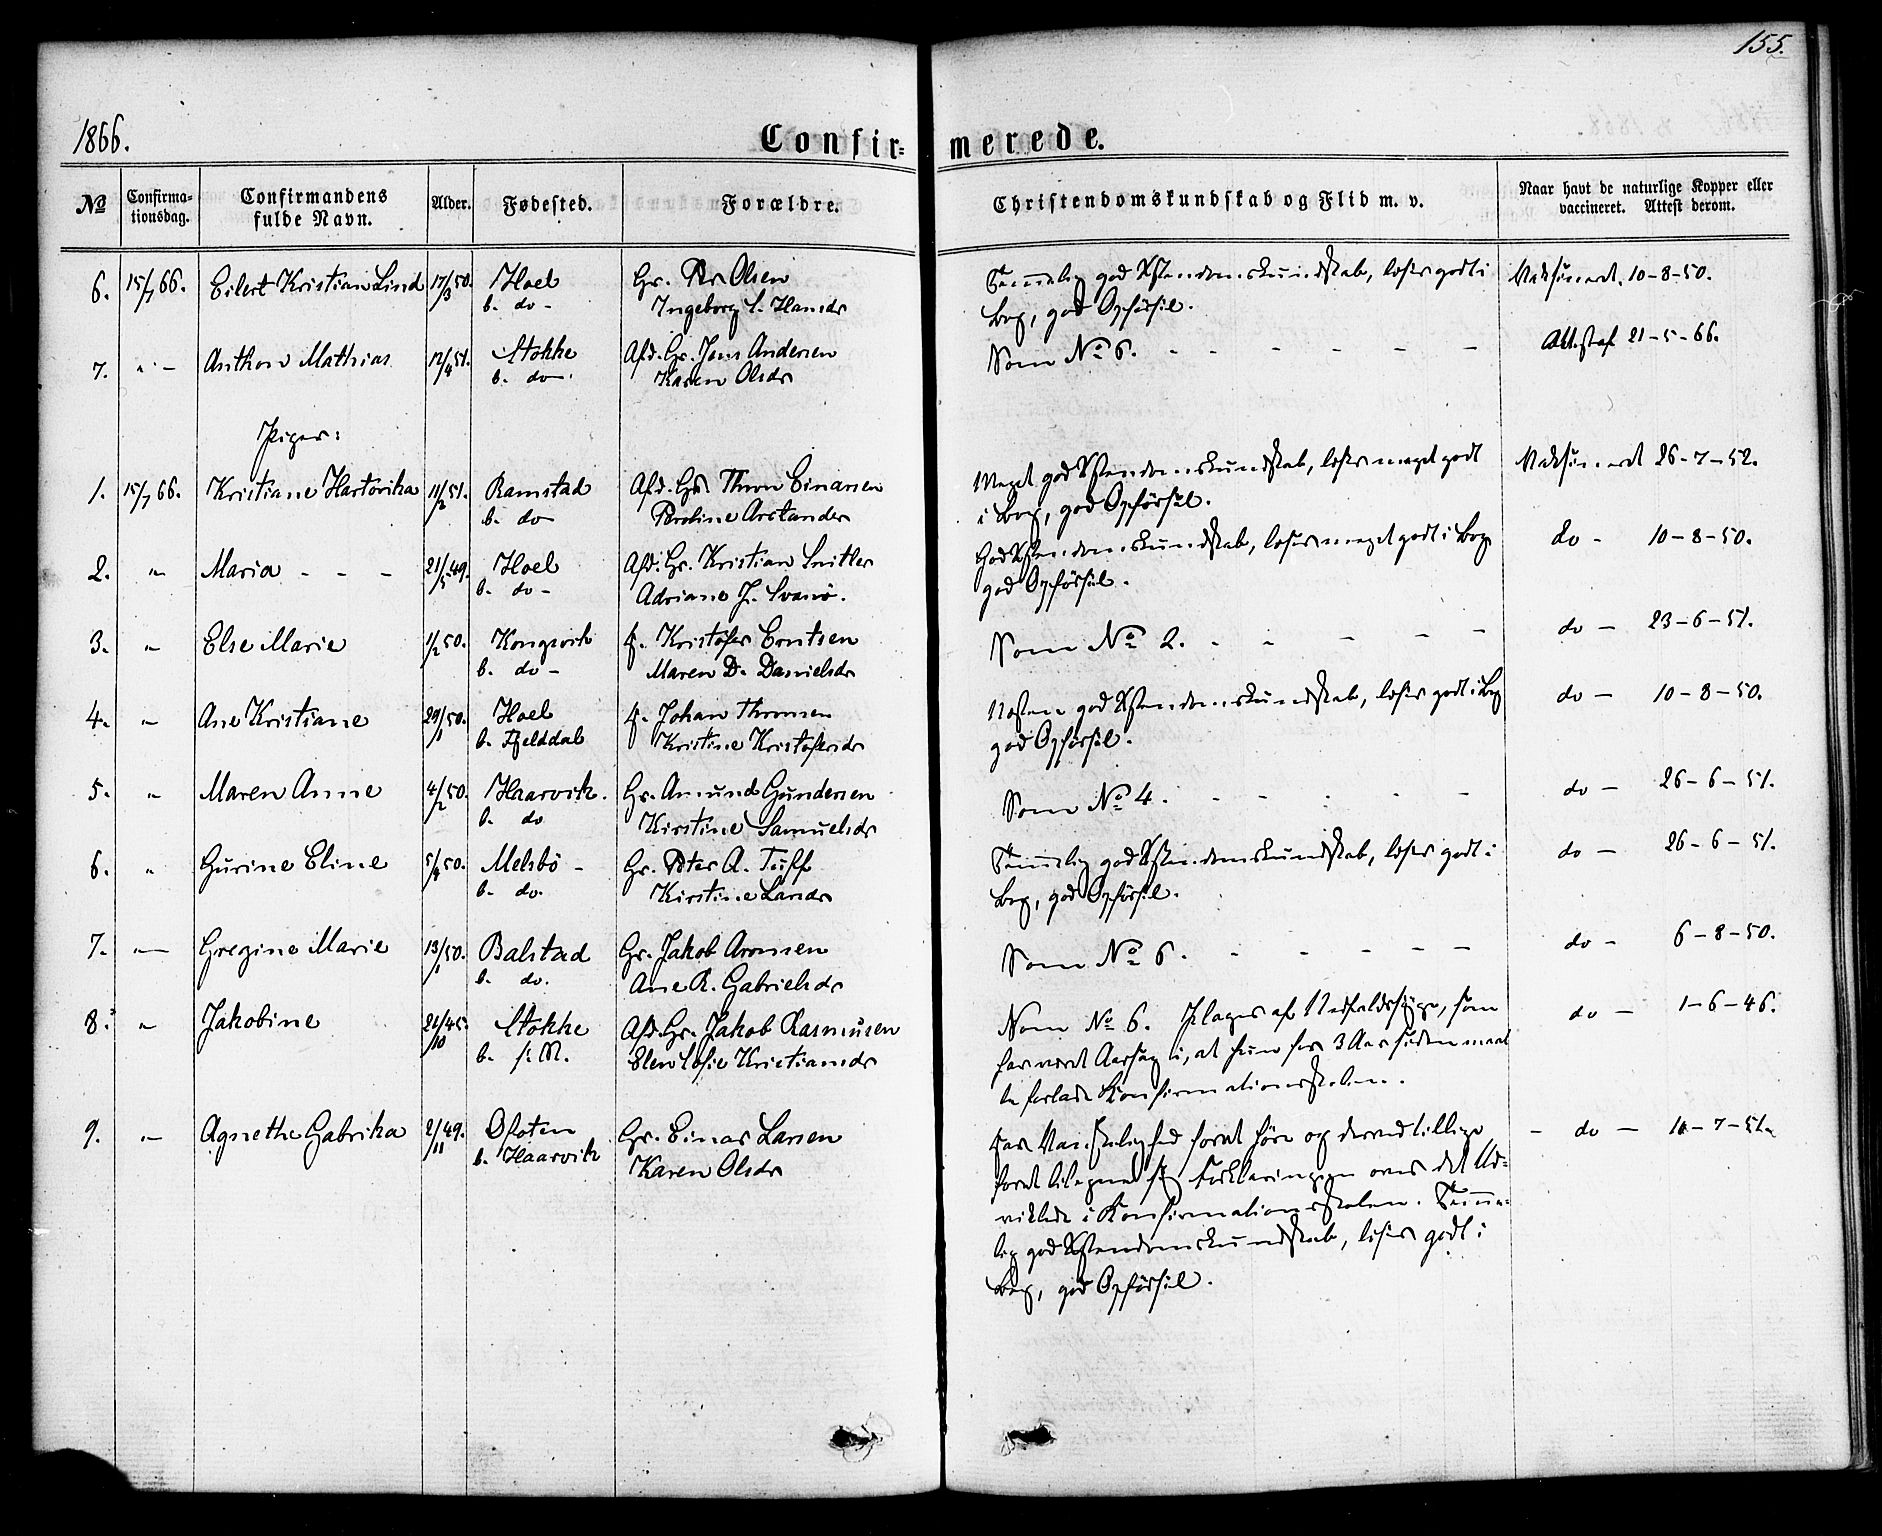 155.
1866.
Confir=
merede.
№
Confirma-
tionsdag.
Confirmandens
fulde Navn.
Alder.
Fødested.
Forældre.
Christendomskundskab og Flid m. v.
Naar havt de naturlige Kopper eller
vaccineret. Attest derom.
6. 15/7 66. Eilert Kristian Lind 17/3 50. Hoel Gr. Per Olsen Temmelig god Xstendomskundskab, læser godt i Vaksineret. 10-8-50.
b. do - Ingeborg L. Hansdr Bog, god Opførsel.
7. " - Anthon Mathias 12/4 51. Stokke Afd. Gr. Jens Andersen Som No 6. - - - - - - Att. staf 21-5-66.
b. do - Karen Olsdr
Piger:
1. 15/7 66. Kristiane Hartvika 11/2 51. Ramstad Afd. Gr. Thron Einarsen Meget god Xstendomskundskab, læser meget godt Vaksineret 26-7-52.
b. do - Pernline Arntzndr i Bog, god Opførsel.
2. " Maria - - - 21/5 49. Hoel Afd. Gr. Kristian Snitler God Xstendomskundskab, læser meget godt i Bog do - 10-8-50.
b. do - Adriane J. Svanø. god Opførsel.
3. " Else Marie 1/2 50. Kongsvik f. Kristofer Erntsen Som No 2. - - - - - do - 23-6-51.
b. do - Maren D. Danielsdr
4. " Ane Kristiane 29/1 50. Hoel f. Johan Thomsen Næsten god Xstendomskundskab, læser godt i Bog do - 10-8-50.
b. Fjelddal Kristine Kristofersdr god Opførsel.
5. " Maren Anne 4/2 50. Haarvik. Gr. Amund Gundersen Som No 4. - - - - - do - 26-6-51.
b. do Kirstine Samuelsdr
6. " Gurine Eline 5/4 50. Melsbø - Gr. Peter A. Tuff Temmelig god Xstendomskundskab, læser godt i do - 26-6-51.
b. do. Kirstine Larsdr Bog, god Opførsel.
7. " Gregine Marie 13/1 50. Balstad Gr. Jakob Aronsen Som No 6. - - - - - do - 6-8-50.
b. do. Ane R. Gabrielsdr
8. " Jakobine 21/10 45. Stokke Afd. Gr. Jakob Rasmusen Som No 6. Plages af Nedfaldssyge, som do - 1-6-46.
b. Elen Sofie Kristiansdr har været Aarsag i, at hun for 3 Aar siden maat
te forlade Konfirmationsskolen.
9. " Agnethe Gabrika 2/11 49. Ofoten Gr. Einar Larsen har Vanskelighed for at høre og derved tillige - do - 10-7-51.
b. Haarvik Karen Olsdr for at tilegne sig Forklaringen over det Ud=
viklede i Konfirmationsskolen. Temme=
lig god Xstendomskundskab, læser godt i
Bog, god Opførsel.